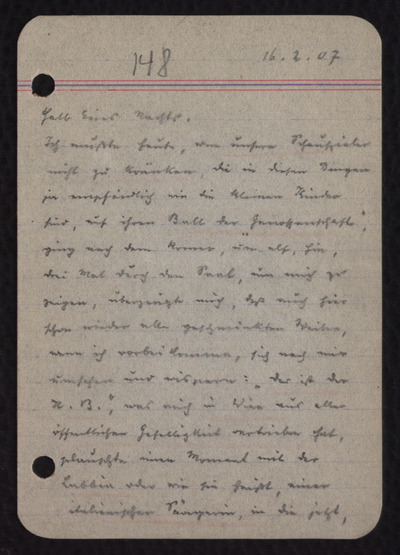 148
16.2.07
Halb Eins Nachts.
Ich mußte heute, um unsere Schauspieler
nicht zu kränken, die in diesen Dingen
ja empfindlich wie die kleinen Kinder
sind, auf ihren Ball der „Genossenschaft",
ging nach dem Konzer, um elf, hin,
drei Mal durch den Saal, um mich zu
zeigen, überzeugte mich, daß auch hier
schon wieder alle geschminkten Weiber,
wenn ich vorbei komme, sich nach mir
umsehen und wispern: „Das ist der
H. B.", was mich in Wien aus aller
öffentlichen Geselligkeit vertrieben hat,
plauschte einen Moment mit der
Labbia oder wie sie heißt, einer
italienischen Sängerin, in die jetzt,